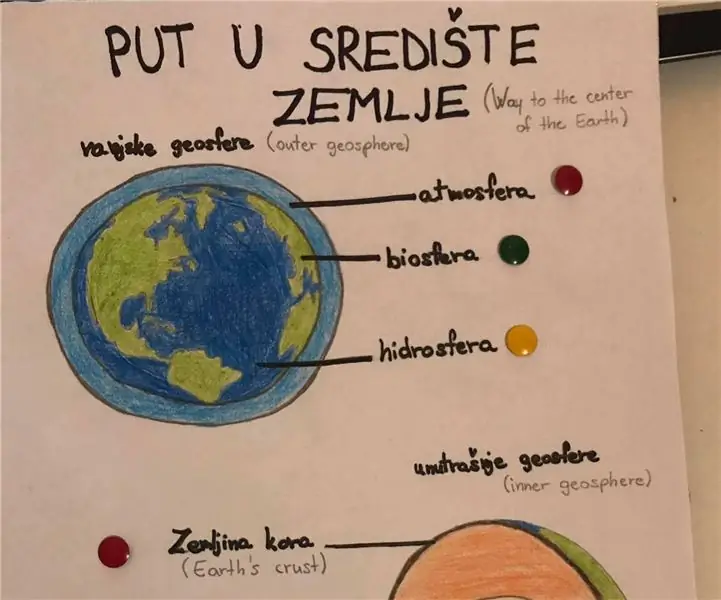 PUT U SREDIŠTE
ZEMLJE (Way to the center
of the Earth)
vanjske geosfere (outer geosphere)
atmosfera
biosfera
hidrosfera
unutrašnje geosfere
(inner geosphere)
Zemljina kora
(Earth's crust)